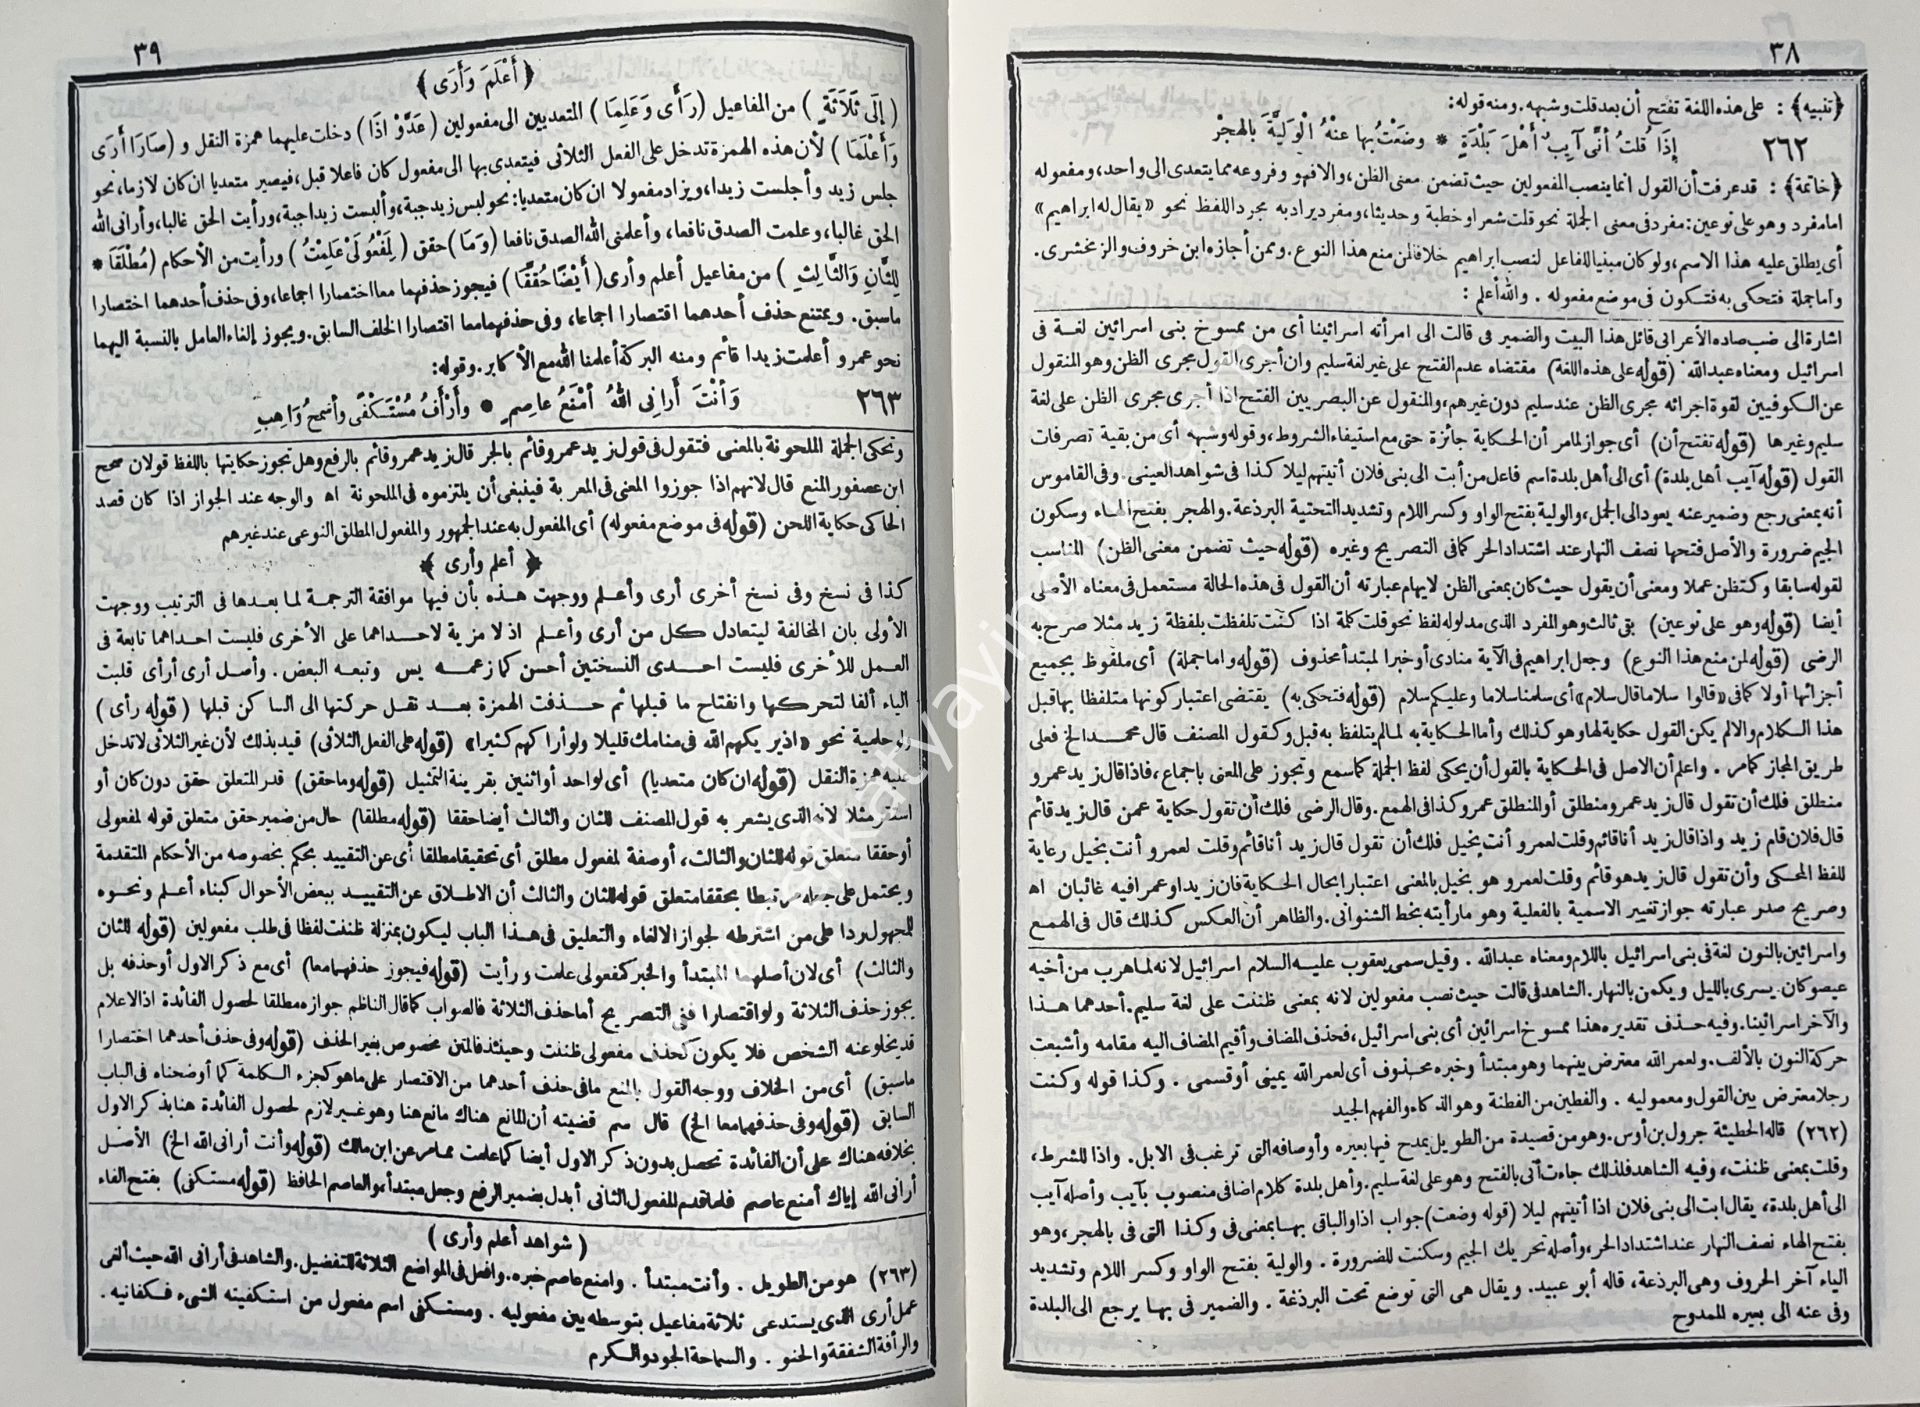 ٣٨
﴿تنبيه﴾ : على هذه اللغة تفتح أن بعد قلت وشبهه. ومنه قوله:
٢٦٢ إِذَا قُلتُ أنَّى آيِبٌ أهْلَ بَلْدَةٍ * وضَعْتُ بها عنْهُ الْوَلِيَّةَ بالهجْرْ
﴿خاتمة﴾ : قد عرفت أن القول انما ينصب المفعولين حيث تضمن معنى الظن، والا فهو وفروعه مما يتعدى الى واحد، ومفعوله
اما مفرد وهو على نوعين: مفرد فى معنى الجملة نحو قلت شعرا وخطبة وحديثا، ومفرد يراد به مجرد اللفظ نحو «يقال له ابراهيم»
أى يطلق عليه هذا الاسم، ولو كان مبنيا للفاعل لنصب ابراهيم خلافا لمن منع هذا النوع. وممن أجازه ابن خروف والزمخشرى.
واما جملة فتحكى به فتكون فى موضع مفعوله . والله أعلم :
اشارة الى ضب صاده الأعرابى قائل هذا البيت والضمير فى قالت الى امرأته اسرائينا أى من ممسوخ بنى اسرائين لغة فى
اسرائيل ومعناه عبدالله (قوله على هذه اللغة) مقتضاه عدم الفتح على غير لغة سليم وان أجرى القول مجرى الظن وهو المنقول
عن الكوفيين لقوة اجرائه مجرى الظن عند سليم دون غيرهم، والمنقول عن البصريين الفتح اذا أجرى مجرى الظن على لغة
سليم وغيرها (قوله تفتح أن) أى جوازا لما مر أن الحكاية جائزة حتى مع استيفاء الشروط، وقوله وشبهه أى من بقية تصرفات
القول (قوله آيب أهل بلدة) أى الى أهل بلدة اسم فاعل من أبت الى بنى فلان أتيتهم ليلا كذا فى شواهد العينى. وفى القاموس
أنه بمعنى رجع وضمير عنه يعود الى الجمل، والولية بفتح الواو وكسر اللام وتشديد التحتية البرذعة. والهجر بفتح الهاء وسكون
الجيم ضرورة والأصل فتحها نصف النهار عند اشتداد الحر كما فى التصريح وغيره (قوله حيث تضمن معنى الظن) المناسب
لقوله سابقا وكتظن عملا ومعنى أن يقول حيث كان بمعنى الظن لايهام عبارته أن القول فى هذه الحالة مستعمل فى معناه الأصلى
أيضا (قوله وهو على نوعين) بقى ثالث وهو المفرد الذى مدلوله لفظ نحو قلت كلمة اذا كنت تلفظت بلفظة زيد مثلا صرح به
الرضى (قوله لمن منع هذا النوع) وجعل ابراهيم فى الآية منادى أو خبرا لمبتدأ محذوف (قوله واما جملة) أى ملفوظ بجميع
أجزائها أو لا كما فى «قالوا سلاما قال سلام» أى سلمنا سلاما وعليكم سلام (قوله فتحكى به) يقتضى اعتبار كونها متلفظا بها قبل
هذا الكلام والا لم يكن القول حكاية لها وهو كذلك وأما الحكاية به لما لم يتلفظ به قبل وكقول المصنف قال محمد الخ فعلى
طريق المجاز كما مر . واعلم أن الاصل فى الحكاية بالقول أن يحكى لفظ الجملة كما سمع وتجوز على المعنى باجماع، فاذا قال زيد عمرو
منطلق فلك أن تقول قال زيد عمرو منطلق أو المنطلق عمرو كذا فى الهمع. وقال الرضى فلك أن تقول حكاية عمن قال زيد قائم
قال فلان قام زيد واذا قال زيد أنا قائم وقلت لعمرو أنت بخيل فلك أن تقول قال زيد أنا قائم وقلت لعمرو أنت بخيل رعاية
للفظ المحكى وأن تقول قال زيد هو قائم وقلت لعمرو هو بخيل بالمعنى اعتبارا بحال الحكاية فان زيدا وعمرا فيه غائبان اه
وصريح صدر عبارته جواز تغيير الاسمية بالفعلية وهو ما رأيته بخط الشنوانى. والظاهر أن العكس كذلك قال فى الهمع
واسرائين بالنون لغة فى بنى اسرائيل باللام ومعناه عبدالله . وقيل سمى يعقوب عليه السلام اسرائيل لانه لما هرب من أخيه
عيصو كان يسرى بالليل ويكمن بالنهار. الشاهد فى قالت حيث نصب مفعولين لانه بمعنى ظننت على لغة سليم. أحدهما هذا
والآخر اسرائينا. وفيه حذف تقديره هذا ممسوخ اسرائين أى بنى اسرائيل، فحذف المضاف وأقيم المضاف اليه مقامه وأشبعت
حركة النون بالألف. ولعمر الله معترض بينهما وهو مبتدأ وخبره محذوف أى لعمر الله يمينى أو قسمى . وكذا قوله وكنت
رجلا معترض بين القول ومعموليه . والفطين من الفطنة وهو الذكاء والفهم الجيد
(٢٦٢) قاله الحطيئة جرول بن أوس. وهو من قصيدة من الطويل يمدح فيها بعيره وأوصافه التى ترغب فى الابل. واذا للشرط،
وقلت بمعنى ظننت، وفيه الشاهد فلذلك جاءت أنى بالفتح وهو على لغة سليم. وأهل بلدة كلام اضافى منصوب بآيب وأصله آيب
الى أهل بلدة، يقال ابت الى بنى فلان اذا أتيتهم ليلا (قوله وضعت) جواب اذا والباقى بها بمعنى فى وكذا التى فى بالهجر، وهو
بفتح الهاء نصف النهار عند اشتداد الحر، وأصله تحريك الجيم وسكنت للضرورة . والولية بفتح الواو وكسر اللام وتشديد
الياء آخر الحروف وهى البرذعة، قاله أبو عبيد. ويقال هى التى توضع تحت البرذعة . والضمير فى بها يرجع الى البلدة
وفى عنه الى بعيره للممدوح
٣٩
﴿ أَعْلَمَ وَأَرَى ﴾
( إِلَى ثَلَاثَةٍ ) من المفاعيل ( رَأَى وَعَلِمَا ) المتعديين الى مفعولين ( عَدَّوْا اذَا ) دخلت عليهما همزة النقل و ( صَارَا أَرَى
وَأَعْلَمَا ) لأن هذه الهمزة تدخل على الفعل الثلاثى فيتعدى بها الى مفعول كان فاعلا قبل، فيصير متعديا ان كان لازما، نحو
جلس زيد وأجلست زيدا، ويزاد مفعولا ان كان متعديا: نحو لبس زيد جبة، وألبست زيدا جبة، ورأيت الحق غالبا، وأرانى الله
الحق غالبا، وعلمت الصدق نافعا، وأعلمنى الله الصدق نافعا ( وَمَا ) حقق ( لِمَفْعُولَىْ عَلِمْتُ ) ورأيت من الأحكام ( مُطْلَقًا *
لِلثَّانِ وَالثَّالِثِ ) من مفاعيل أعلم وأرى ( أَيْضًا حُقِّقَا ) فيجوز حذفهما معا اختصارا اجماعا، وفى حذف أحدهما اختصارا
ماسبق. ويمتنع حذف أحدهما اقتصارا اجماعا، وفى حذفهما معا اقتصارا الخلف السابق. ويجوز إلغاء العامل بالنسبة اليهما
نحو عمرو أعلمت زيدا قائم ومنه البركة أعلمنا الله مع الأكابر. وقوله:
٢٦٣ وَأنْتَ أَرانِى اللهُ أمْنَعُ عاصِمٍ * وَأَرْأَفُ مُسْتَكْفًى وأسْمَحُ وَاهِبِ
وتحكى الجملة الملحونة بالمعنى فتقول فى قول زيد عمرو قائم بالجر قال زيد عمرو قائم بالرفع وهل تجوز حكايتها باللفظ قولان صحح
ابن عصفور المنع قال لانهم اذا جوزوا المعنى فى المعربة فينبغى أن يلتزموه فى الملحونة اه والوجه عند الجواز اذا كان قصد
الحاكى حكاية اللحن (قوله فى موضع مفعوله) أى المفعول به عند الجمهور والمفعول المطلق النوعى عند غيرهم
﴿ أعلم وأرى ﴾
كذا فى نسخ وفى نسخ أخرى أرى وأعلم ووجهت هذه بأن فيها موافقة الترجمة لما بعدها فى الترتيب ووجهت
الأولى بان المخالفة ليتعادل كل من أرى وأعلم اذ لا مزية لاحداهما على الأخرى فليست احداهما تابعة فى
العمل للأخرى فليست احدى النسختين أحسن كما زعمه يس وتبعه البعض . وأصل أرى أرأى قلبت
الياء ألفا لتحركها وانفتاح ما قبلها ثم حذفت الهمزة بعد نقل حركتها الى الساكن قبلها (قوله رأى)
ولو حلمية نحو «اذ يريكهم الله فى منامك قليلا ولو أراكهم كثيرا» (قوله على الفعل الثلاثى) قيد بذلك لأن غير الثلاثى لا تدخل
عليه همزة النقل (قوله ان كان متعديا) أى لواحد أو اثنين بقرينة التمثيل (قوله وما حقق) قدر المتعلق حقق دون كان أو
استقر مثلا لانه الذى يشعر به قول المصنف للثان والثالث أيضا حققا (قوله مطلقا) حال من ضمير حقق متعلق قوله لمفعولى
أو حققا متعلق قوله للثان والثالث، أو صفة لمفعول مطلق أى تحقيقا مطلقا أى عن التقييد بحكم بخصوصه من الأحكام المتقدمة
ويحتمل على جعله مرتبطا بحققا متعلق قوله للثان والثالث أن الاطلاق عن التقييد ببعض الأحوال كبناء أعلم ونحوه
للمجهول ردا على من اشترطه لجواز الالغاء والتعليق فى هذا الباب ليكون بمنزلة ظننت لفظا فى طلب مفعولين (قوله للثان
والثالث) أى لان أصلهما المبتدأ والخبر كمفعولى علمت ورأيت (قوله فيجوز حذفهما معا) أى مع ذكر الاول أو حذفه بل
يجوز حذف الثلاثة ولو اقتصارا ففى التصريح أما حذف الثلاثة فالصواب كما قال الناظم جوازه مطلقا لحصول الفائدة اذ الاعلام
قد يخلو عنه الشخص فلا يكون كحذف مفعولى ظننت وحينئذ فالمتن مخصوص بغير الحذف (قوله وفى حذف أحدهما اختصارا
ماسبق) أى من الخلاف ووجه القول بالمنع ما فى حذف أحدهما من الاقتصار على ما هو كجزء الكلمة كما أوضحناه فى الباب
السابق (قوله وفى حذفهما معا الخ) قال سم قضيته أن المانع هناك مانع هنا وهو غير لازم لحصول الفائدة هنا بذكر الاول
بخلافه هناك على أن الفائدة تحصل بدون ذكر الاول أيضا كما علمت مما مر عن ابن مالك (قوله وأنت أرانى الله الخ) الأصل
أرانى الله إياك أمنع عاصم فلما قدم المفعول الثانى أبدل بضمير الرفع وجعل مبتدأ، والعاصم الحافظ (قوله مستكفى) بفتح الفاء
( شواهد أعلم وأرى )
(٢٦٣) هو من الطويل . وأنت مبتدأ . وامنع عاصم خبره. وافعل فى المواضع الثلاثة للتفضيل. والشاهد فى أرانى الله حيث ألغى
عمل أرى الذى يستدعى ثلاثة مفاعيل بتوسطه بين مفعوليه . ومستكفى اسم مفعول من استكفيته الشىء فكفانيه .
والرأفة الشفقة والحنو . والسماحة الجود والكرم